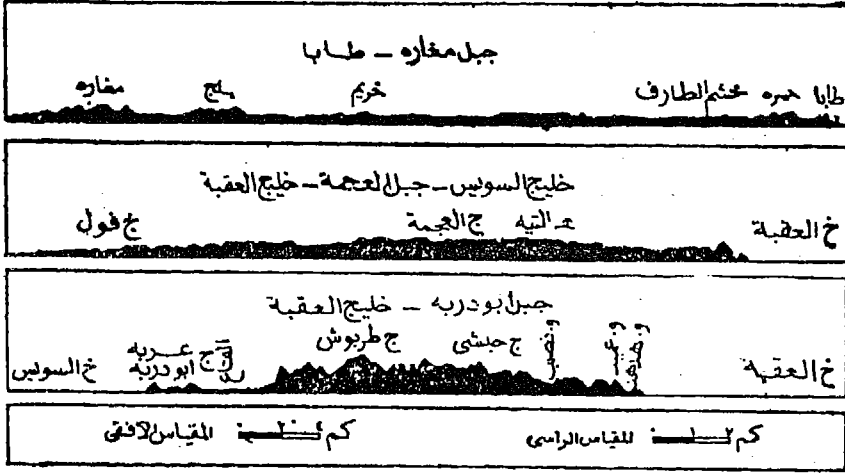 جبل مغاره - طابا
طابا حمره محشم الطارف خريم يلج مغاره
خليج السويس - جبل العجمة - خليج العقبة
خ العقبة هـ التيه ج العجمة ج فول
جبل ابو دربه - خليج العقبة
خ العقبة و نصب ج حبشى ج طربوش القاع ج عربه ابو دربه خ السويس
كم ٢ ١ المقياس الراسى كم المقياس الافقى